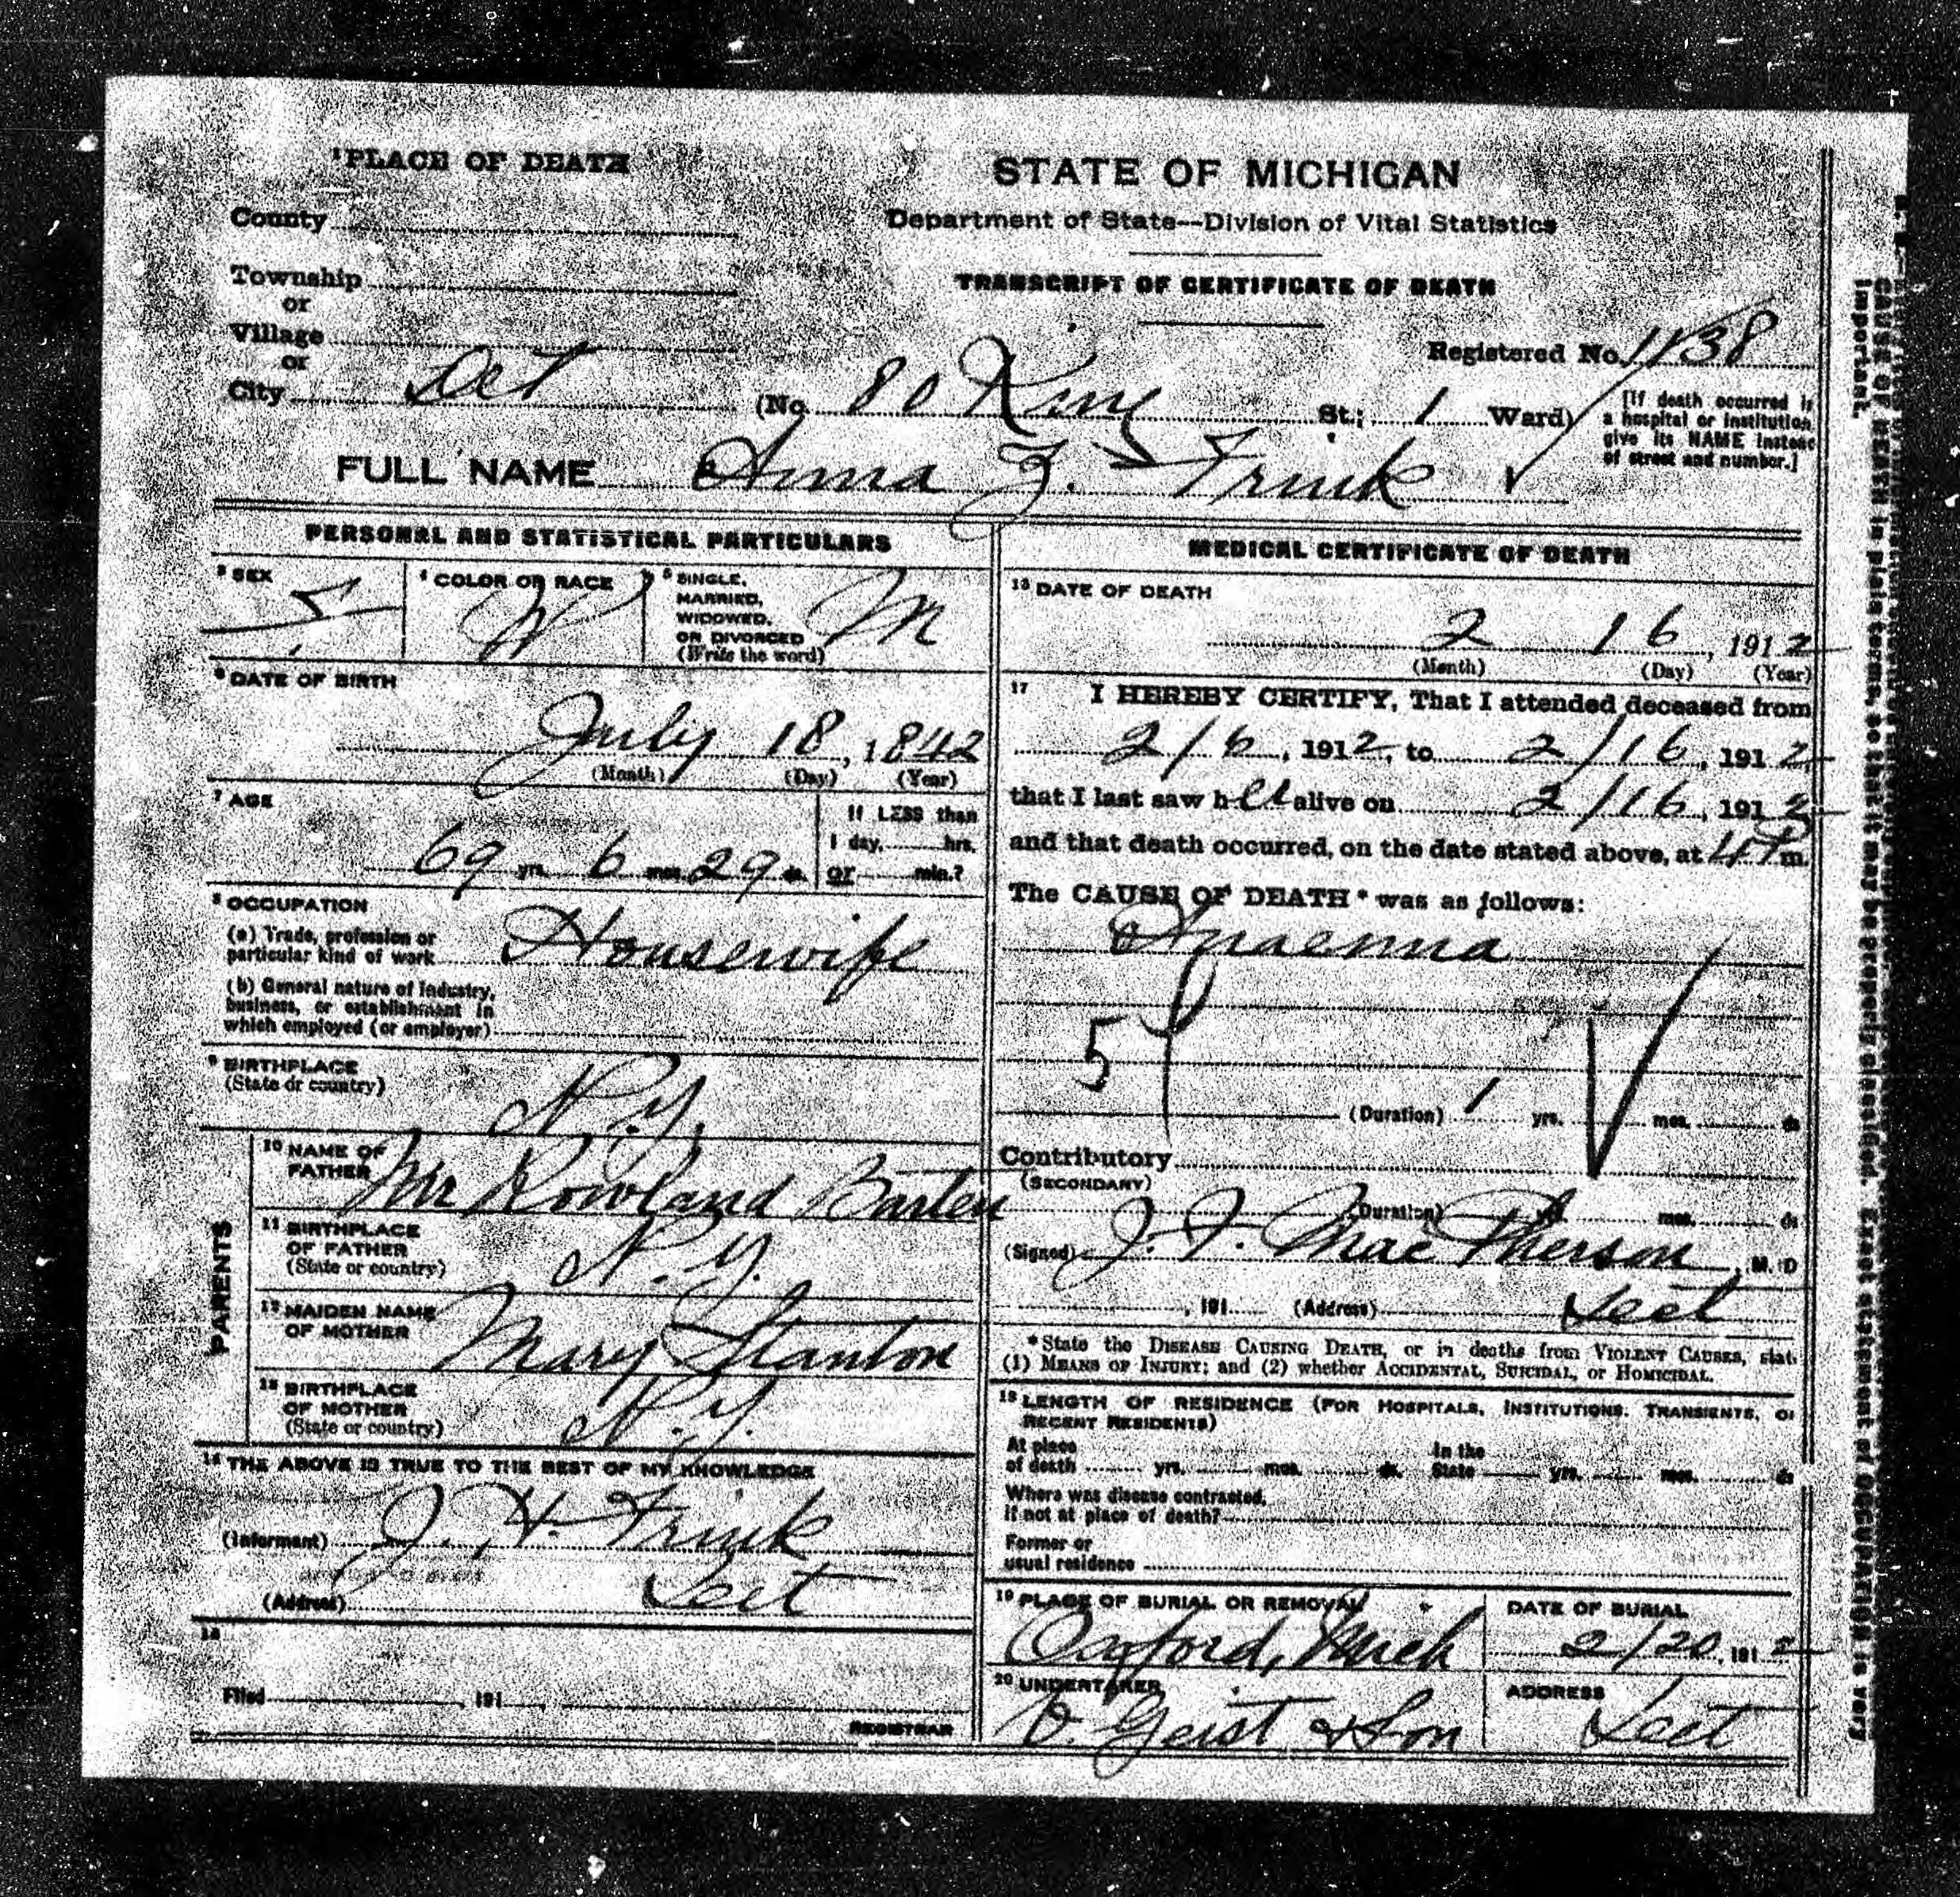 ¹PLACE OF DEATH
County
Township
or
Village
or
City Det
STATE OF MICHIGAN
Department of State—Division of Vital Statistics
TRANSCRIPT OF CERTIFICATE OF DEATH
Registered No. 1138
(No. 80 King St.; 1 Ward)
[If death occurred i
a hospital or institution
give its NAME instead
of street and number.]
FULL NAME Anna F. Frink
PERSONAL AND STATISTICAL PARTICULARS
³ SEX
F
⁴ COLOR OR RACE
W
⁵ SINGLE,
MARRIED,
WIDOWED,
OR DIVORCED
(Write the word)
M
⁶ DATE OF BIRTH
July 18, 1842
(Month) (Day) (Year)
⁷ AGE
69 yrs. 6 mos. 29 ds.
If LESS than
1 day, hrs.
or min.?
⁸ OCCUPATION
(a) Trade, profession or
particular kind of work Housewife
(b) General nature of industry,
business, or establishment in
which employed (or employer)
⁹ BIRTHPLACE
(State or country)
N.Y.
PARENTS
¹⁰ NAME OF
FATHER Mr Rowland
¹¹ BIRTHPLACE
OF FATHER
(State or country) N.Y.
¹² MAIDEN NAME
OF MOTHER Mary Stanton
¹³ BIRTHPLACE
OF MOTHER
(State or country) N.Y.
¹⁴ THE ABOVE IS TRUE TO THE BEST OF MY KNOWLEDGE
(Informant) J. H. Frink
(Address) Det
¹⁵
Filed , 191 ,
REGISTRAR
MEDICAL CERTIFICATE OF DEATH
¹⁶ DATE OF DEATH
2 16, 1912
(Month) (Day) (Year)
¹⁷ I HEREBY CERTIFY, That I attended deceased from
2/6, 1912, to 2/16, 1912,
that I last saw her alive on 2/16, 1912
and that death occurred, on the date stated above, at 4 P m.
The CAUSE OF DEATH * was as follows:
Anaemia
54
(Duration) 1 yrs. mos. ds
Contributory
(SECONDARY)
(Duration) mos. ds
(Signed) J. F. MacPherson, M. D
, 191 (Address) Det
* State the DISEASE CAUSING DEATH, or in deaths from VIOLENT CAUSES, stat
(1) MEANS OF INJURY; and (2) whether ACCIDENTAL, SUICIDAL, or HOMICIDAL.
¹⁸ LENGTH OF RESIDENCE (FOR HOSPITALS, INSTITUTIONS, TRANSIENTS, OR
RECENT RESIDENTS)
At place
of death yrs. mos. ds. In the
State yrs. mos. ds
Where was disease contracted,
if not at place of death?
Former or
usual residence
¹⁹ PLACE OF BURIAL OR REMOVAL
Oxford, Mich
DATE OF BURIAL
2/20, 1912
²⁰ UNDERTAKER
V. Geist & Son
ADDRESS
Det
CAUSE OF DEATH in plain terms, so that it may be properly classified. Exact statement of OCCUPATION is very
important.